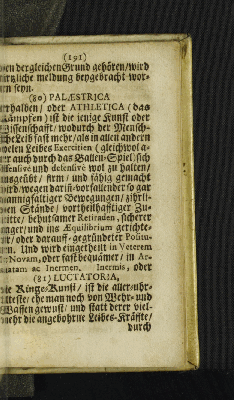 (191)
dergleichen Grund gehören/wird
meldung beygebracht wor-
seyn.
(80) PALÆSTRICA
halben/ oder ATHLETICA (das
Kämpfen) ist die jenige Kunst oder
Wissenschafft/ wodurch der Mensch-
Leib fast mehr/als in allen andern
vielen Leibes Exercitien (gleichwol a-
er auch durch das Ballen-Spiel) sich
offensivè und defensivè wol zu halten/
ausgeübt/ firm/ und fähig gemacht
wird wegen dariñ vorfallender so gar
mannigfaltiger Bewegungen/zihrli-
chen Stände/ vortheilhafftiger Zu-
tritte/ behutsamer Retiraden, sicherer
und ins Æquilibrium gerichte-
oder darauff-gegründeter Positu-
en. Und wird eingetheilt in Veterem
Novam, oder fast bequämer/ in Ar-
matam ac Inermen. Inermis, oder
(81) LUCTATORIA,
die Ringe-Kunst/ ist die aller-uhr-
älteste/ ehe man noch von Wehr- und
Waffen gewust/ und statt derer viel-
mehr die angebohrne Leibes-Kräffte/
durch